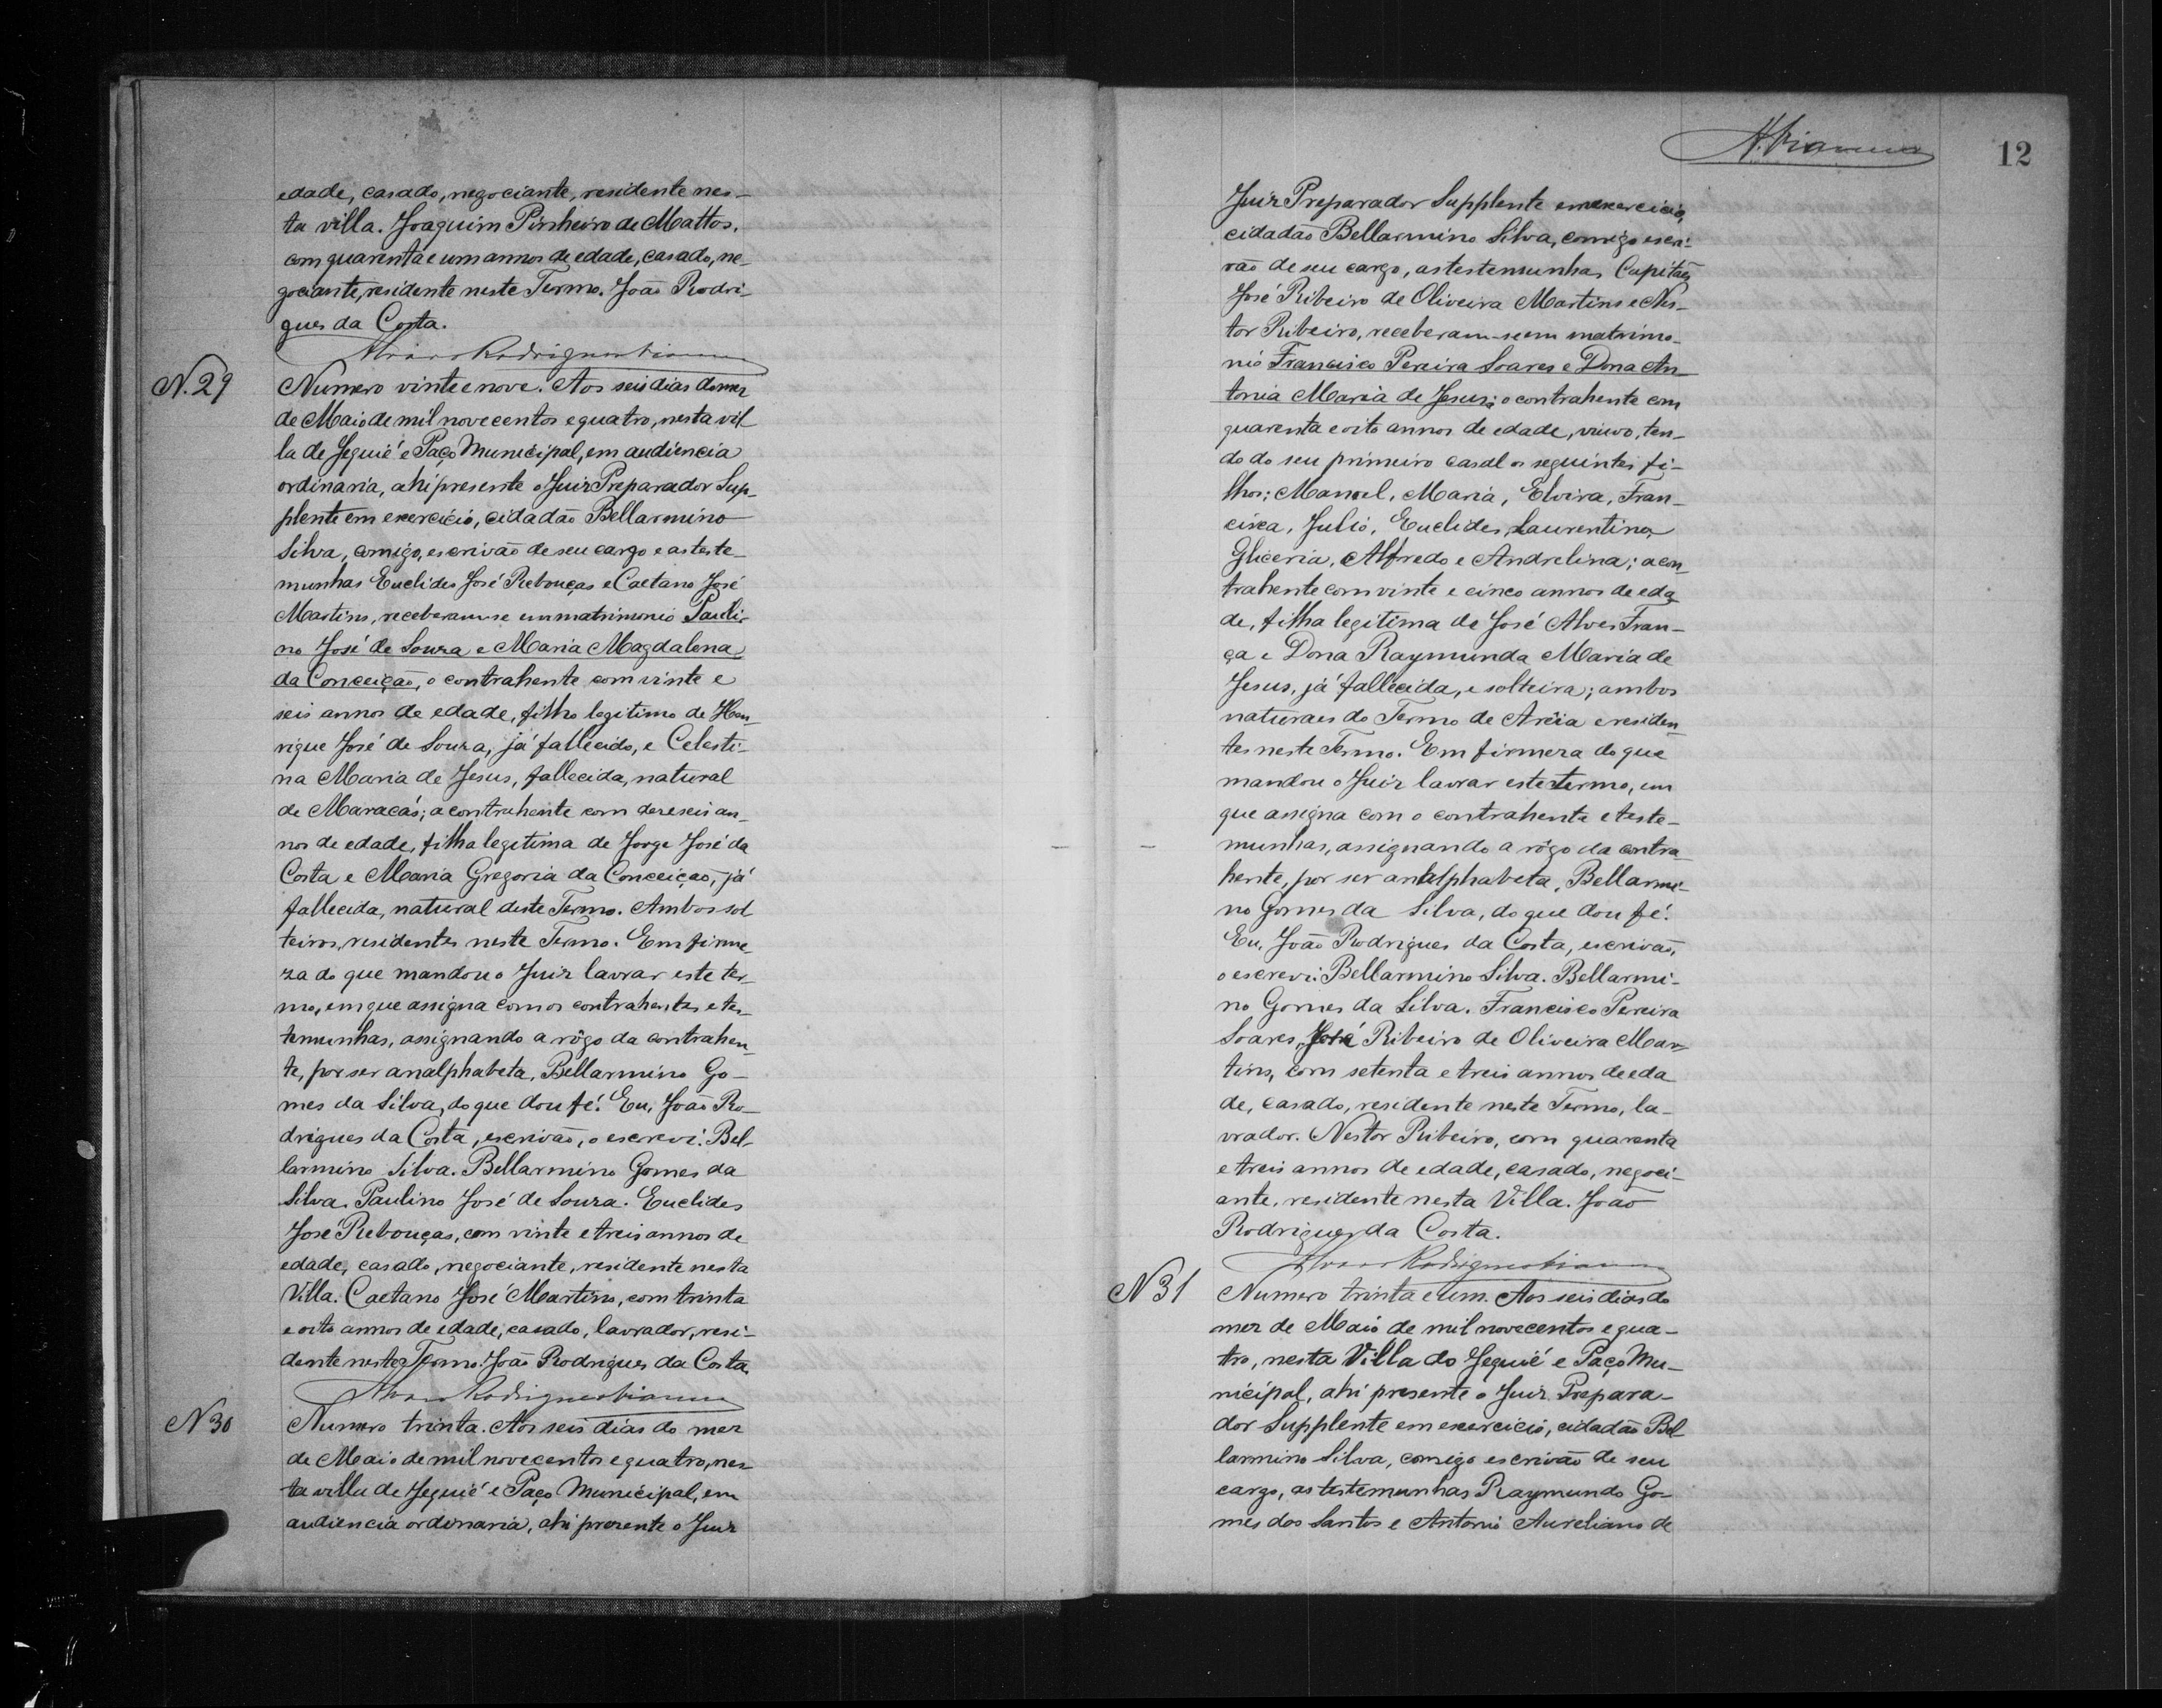 edade, casado, negociante, residente nes-
ta villa. Joaquim Pinheiro de Mattos,
com quarenta e um annos de edade, casado, ne-
gociante, residente neste Termo. João Rodri-
gues da Costa.
Alvaro Rodrigues Vianna
N. 29
Numero vinte e nove. Aos seis dias do mez
de Maio de mil novecentos e quatro, nesta vil-
la de Jequié e Paço Municipal, em audiencia
ordinaria, ahi presente o Juiz Preparador Sup-
plente em exercicio, cidadão Bellarmino
Silva, comigo, escrivão de seu cargo e as teste-
munhas Euclides José Rebouças e Caetano José
Martins, receberam-se em matrimonio Pauli-
no José de Souza e Maria Magdalena
da Conceição, o contrahente com vinte e
seis annos de edade, filho legitimo de Hen-
rique José de Souza, já fallecido, e Celesti-
na Maria de Jesus, fallecida, natural
de Maracás; a contrahente com dezeseis an-
nos de edade, filha legitima de Jorge José da
Costa e Maria Gregoria da Conceição, já
fallecida, natural deste Termo. Ambos sol
teiros, residentes neste Termo. Em firme-
za do que mandou o Juiz lavrar este ter-
mo, em que assigna com os contrahentes e tes-
temunhas, assignando a rôgo da contrahen-
te, por ser analphabeta, Bellarmino Go-
mes da Silva, do que dou fé. Eu, João Ro-
drigues da Costa, escrivão, o escrevi. Bel-
larmino Silva. Bellarmino Gomes da
Silva. Paulino José de Souza. Euclides
José Rebouças, com vinte e treis annos de
edade, casado, negociante, residente nesta
Villa. Caetano José Martins, com trinta
e oito annos de edade, casado, lavrador, resi-
dente neste Termo. João Rodrigues da Costa.
Alvaro Rodrigues Vianna
N 30
Numero trinta. Aos seis dias do mez
de Maio de mil novecentos e quatro, nes-
ta villa de Jequié e Paço Municipal, em
audiencia ordinaria, ahi presente o Juiz
A. Vianna
12
Juiz Preparador Supplente em exercicio,
cidadão Bellarmino Silva, comigo escri-
vão de seu cargo, as testemunhas Capitão
José Ribeiro de Oliveira Martins e Nes-
tor Ribeiro, receberam-se em matrimo-
nio Francisco Pereira Soares e Dona An-
tonia Maria de Jesus; o contrahente com
quarenta e oito annos de edade, viuvo, ten-
do do seu primeiro casal os seguintes fi-
lhos: Manoel, Maria, Elvira, Fran-
cisca, Julio, Euclides, Laurentino,
Gliceria, Alfredo e Andrelina; a con-
trahente com vinte e cinco annos de eda
de, filha legitima de José Alves Fran-
ça e Dona Raymunda Maria de
Jesus, já fallecida, e solteira; ambos
naturaes do Termo de Arêia e residen-
tes neste Termo. Em firmeza do que
mandou o Juiz lavrar este termo, em
que assigna com o contrahente e teste-
munhas, assignando a rôgo da contra-
hente, por ser analphabeta, Bellarmi-
no Gomes da Silva, do que dou fé.
Eu, João Rodrigues da Costa, escrivão,
o escrevi. Bellarmino Silva. Bellarmi-
no Gomes da Silva. Francisco Pereira
Soares, José Ribeiro de Oliveira Mar-
tins, com setenta e treis annos de eda
de, casado, residente neste Termo, la-
vrador. Nestor Ribeiro, com quarenta
e treis annos de edade, casado, negoci-
ante, residente nesta Villa. João
Rodrigues da Costa.
Alvaro Rodrigues Vianna
N 31
Numero trinta e um. Aos seis dias do
mez de Maio de mil novecentos e qua-
tro, nesta Villa do Jequié e Paço Mu-
nicipal, ahi presente o Juiz Prepara-
dor Supplente em exercicio, cidadão Bel-
larmino Silva, comigo escrivão de seu
cargo, as testemunhas Raymundo Go-
mes dos Santos e Antonio Aureliano de